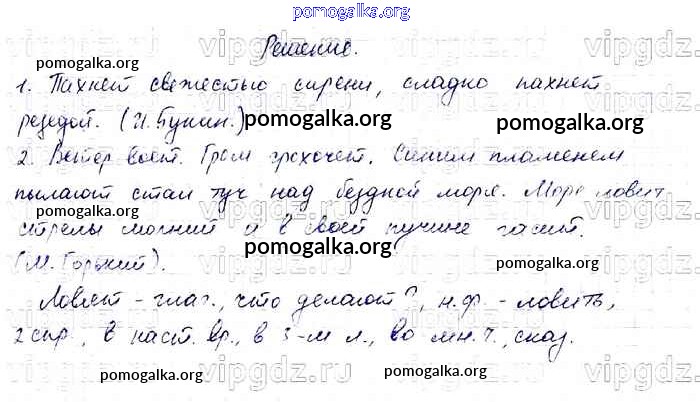 pomogalka.org
Решение.
1. Пахнет свежестью сирени, сладко пахнет
pomogalka.org
резедой. (И. Бунин.)
pomogalka.org pomogalka.org
2. Ветер воет. Гром грохочет. Синим пламенем
пылают стаи туч над бездной моря. Море ловит
pomogalka.org pomogalka.org
стрелы молний и в своей пучине гасит.
pomogalka.org
(М. Горький).
pomogalka.org
Ловят - глаг., что делают?, н.ф. - ловить,
2 спр., в наст. вр., в 3-м л., во мн. ч., сказ.
pomogalka.org pomogalka.org
vipgdz.ru